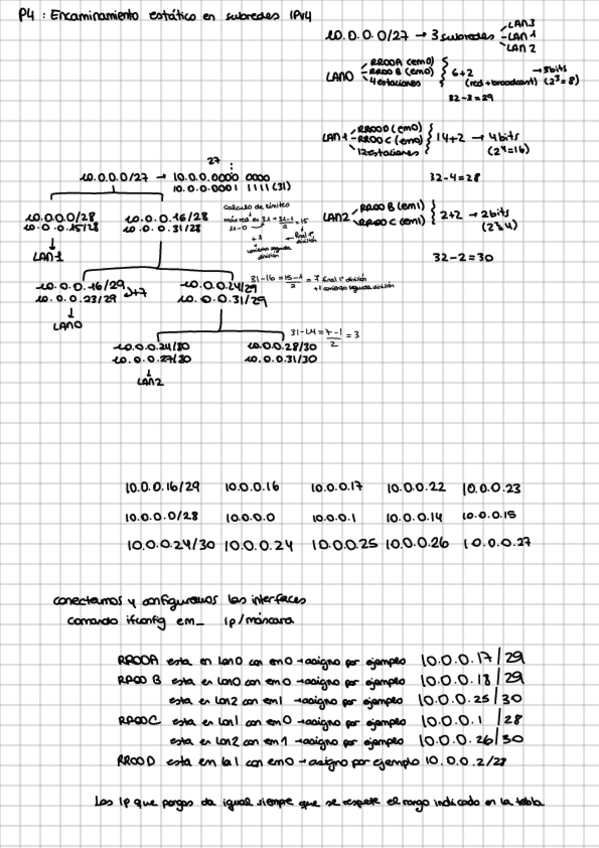 P4: Encaminamiento estático en subredes IPv4
10.0.0.0/27 → 3 subredes
LAN3
LAN1
LAN2
LAN0
RROOA (em0)
RROO B (em0)
4 estaciones
6+2
(red+broadcast)
→ 3bits
(2³=8)
32-3=29
LAN1
RROO D (em0)
RROO C (em0)
12 estaciones
14+2 → 4bits
(2⁴=16)
32-4=28
LAN2
RROO B (em1)
RROO C (em1)
2+2 → 2bits
(2²=4)
32-2=30
27
10.0.0.0/27 → 10.0.0.0000 0000
10.0.0.0001 1111 (31)
10.0.0.0/28
10.0.0.15/28
10.0.0.16/28
10.0.0.31/28
LAN1
calculo de límites
=15
+1
comienzo segunda
división
final 1ª
división
10.0.0.16/29
10.0.0.23/29
10.0.0.24/29
10.0.0.31/29
31-16=15-1/2 = 7 final 1ª división
+1 comienzo segunda división
LAN0
10.0.0.24/30
10.0.0.27/30
10.0.0.28/30
10.0.0.31/30
31-24=7-1/2 = 3
LAN2
10.0.0.16/29 10.0.0.16 10.0.0.17 10.0.0.22 10.0.0.23
10.0.0.0/28 10.0.0.0 10.0.0.1 10.0.0.14 10.0.0.15
10.0.0.24/30 10.0.0.24 10.0.0.25 10.0.0.26 10.0.0.27
conectamos y configuramos las interfaces
comando ifconfig em_ ip/máscara
RROOA esta en lan0 con em0 → asigno por ejemplo 10.0.0.17/29
RROO B esta en lan0 con em0 → asigno por ejemplo 10.0.0.18/29
esta en lan2 con em1 → asigno por ejemplo 10.0.0.25/30
RROOC esta en lan1 con em0 → asigno por ejemplo 10.0.0.1/28
esta en lan2 con em1 → asigno por ejemplo 10.0.0.26/30
RROO D esta em la 1 con em0 → asigno por ejemplo 10.0.0.2/28
Las ip que pongas da igual siempre que se respete el rango indicado en la tabla